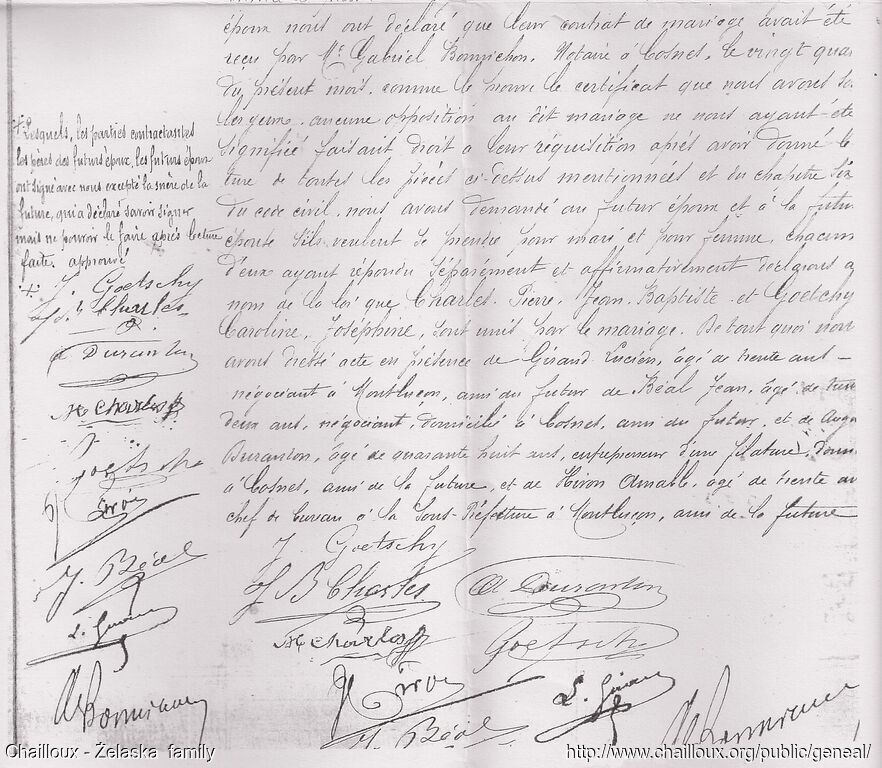 époux nous ont déclaré que leur contrat de mariage avait été
reçu par Me Gabriel Bonnichon, Notaire à Cosnes, le vingt qua
du présent mois, comme le prouve le certificat que nous avons so
les yeux, aucune opposition au dit mariage ne nous ayant été
signifié faisant droit à leur réquisition après avoir donné le
ture de toutes les pièces ci-dessus mentionnées et du chapitre six
du code civil, nous avons demandé au futur époux et à la futu
épouse s'ils veulent se prendre pour mari et pour femme, chacun
d'eux ayant répondu séparément et affirmativement déclarons a
nom de la loi que Charles Pierre, Jean-Baptiste et Goetchy
Caroline, Joséphine, sont unis par le mariage. De tout quoi nou
avons dressé acte en présence de Giraud Lucien, âgé de trente ans
négociant à Montluçon, ami du futur de Béal Jean, âgé de tren
deux ans, négociant, domicilié à Cosnes, ami du futur, et de Augu
Duranton, âgé de quarante huit ans, entrepreneur d'une filature, domi
à Cosnes, ami de la future, et de Hiron Amable, âgé de trente an
chef de bureau à la Sous-Préfecture à Montluçon, ami de la future
+ Lesquels, les parties contractantes
les pères des futurs époux, les futurs époux
ont signé avec nous excepté la mère de la
future, qui a déclaré savoir signer
mais ne pouvoir le faire après lecture
faite. approuvé
+ J. Goetschy
J. B. Charles
A Duranton
M Charles
Goetschy
J. Béal
L. Giraud
Bonnichon
J. Goetschy
J B Charles
A Duranton
M Charles
Goetschy
L. Giraud
J. Béal
Chailloux - Želaska family
http://www.chailloux.org/public/geneal/